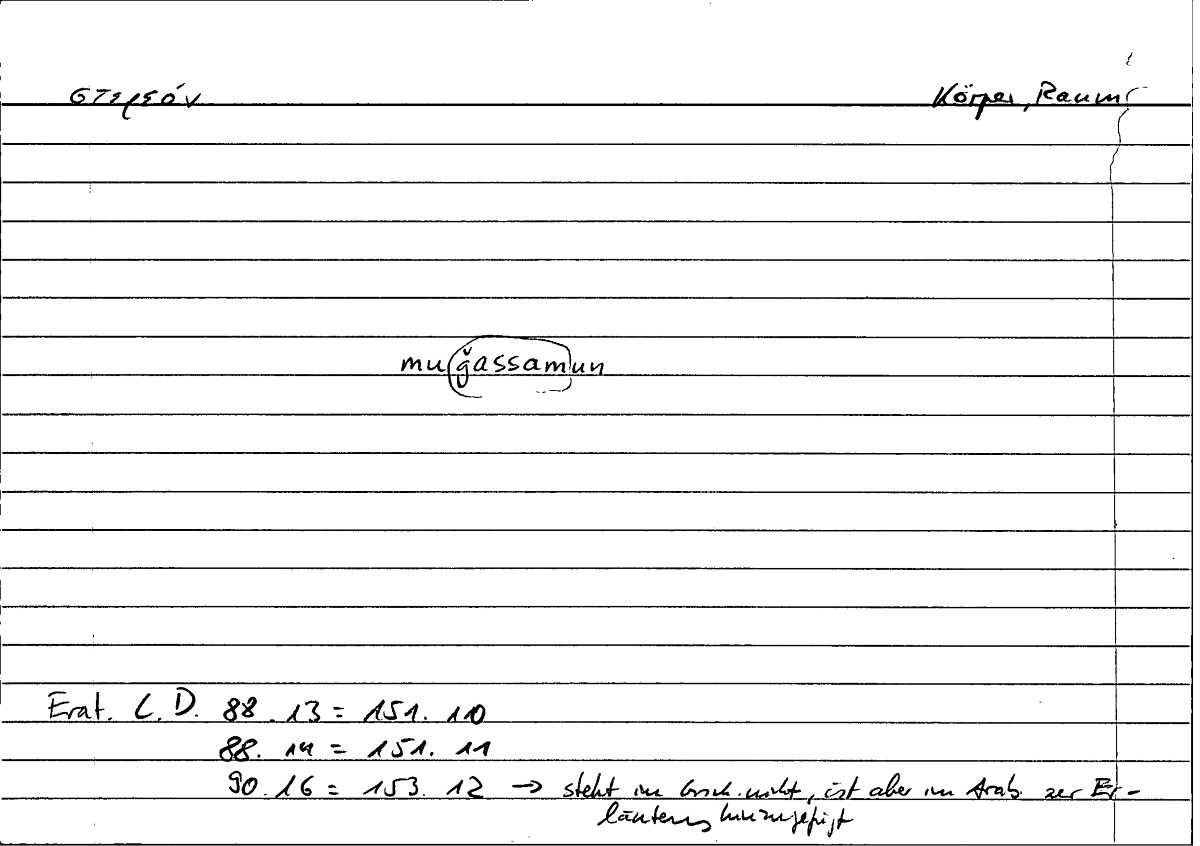 στερεόν Körper, Raum
muǧassamun
Erat. C.D. 88.13 = 151.10
88.14 = 151.11
90.16 = 153.12 → steht im Griech. nicht, ist aber im Arab. zur Er-
läuterung hinzugefügt